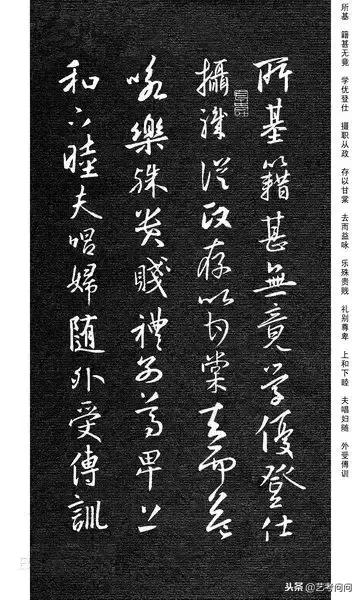 所基 籍甚无竟 学优登仕 摄职从政 存以甘棠 去而益咏 乐殊贵贱 礼别尊卑 上和下睦 夫唱妇随 外受傅训
所基籍甚無竟学優登仕
攝職從政存以甘棠去而益
咏樂殊貴賤禮別尊卑上
和下睦夫唱婦随外受傅訓
头条 @艺考问问